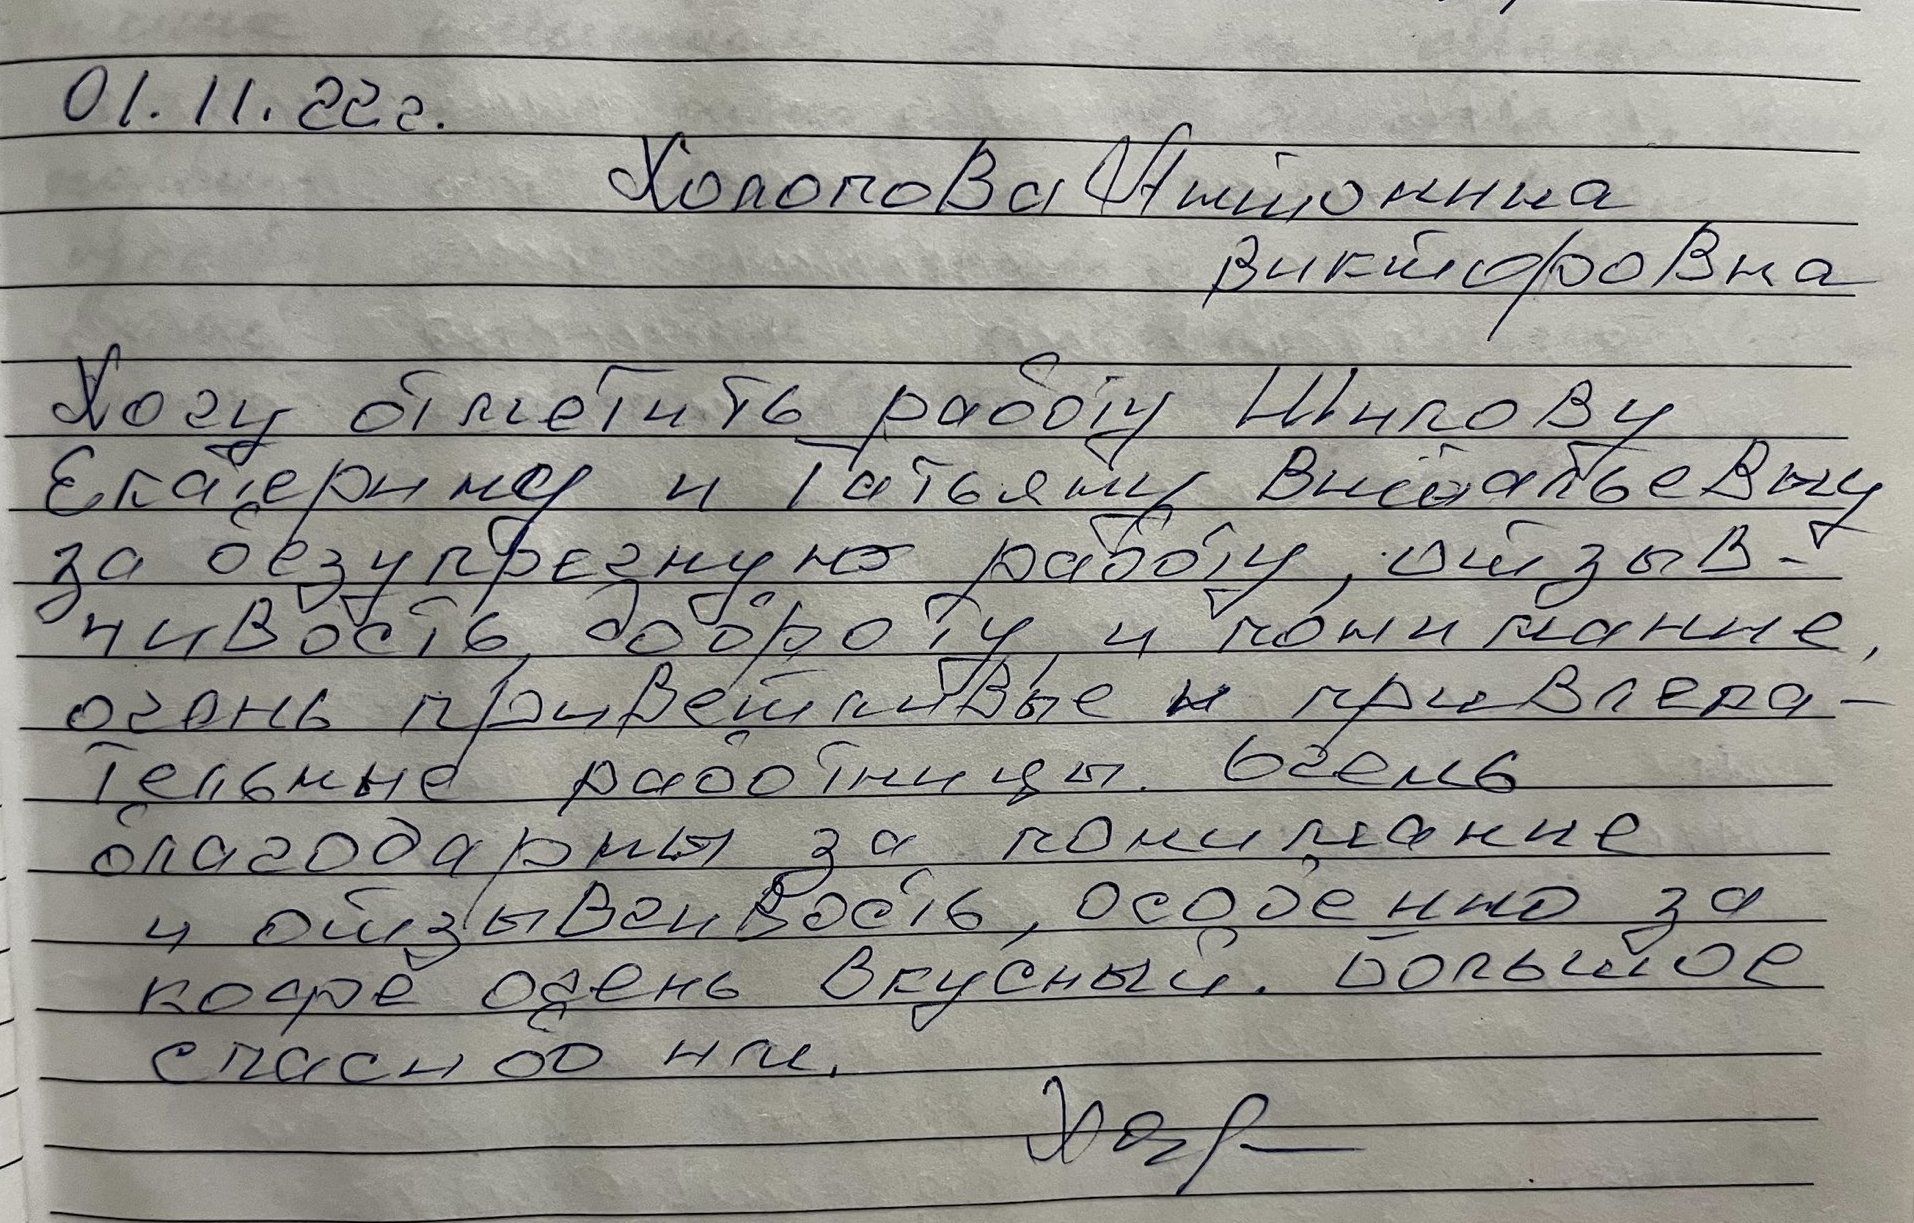 01.11.22г.
Холопова Антонина
Викторовна
Хочу отметить работу Шилову
Екатерину и Татьяну Витальевну
за безупречную работу, отзыв-
чивость, доброту и понимание,
очень приветливые и привлека-
тельные работницы. Очень
благодарны за понимание
и отзывчивость, особенно за
кофе очень вкусный. Большое
спасибо им.